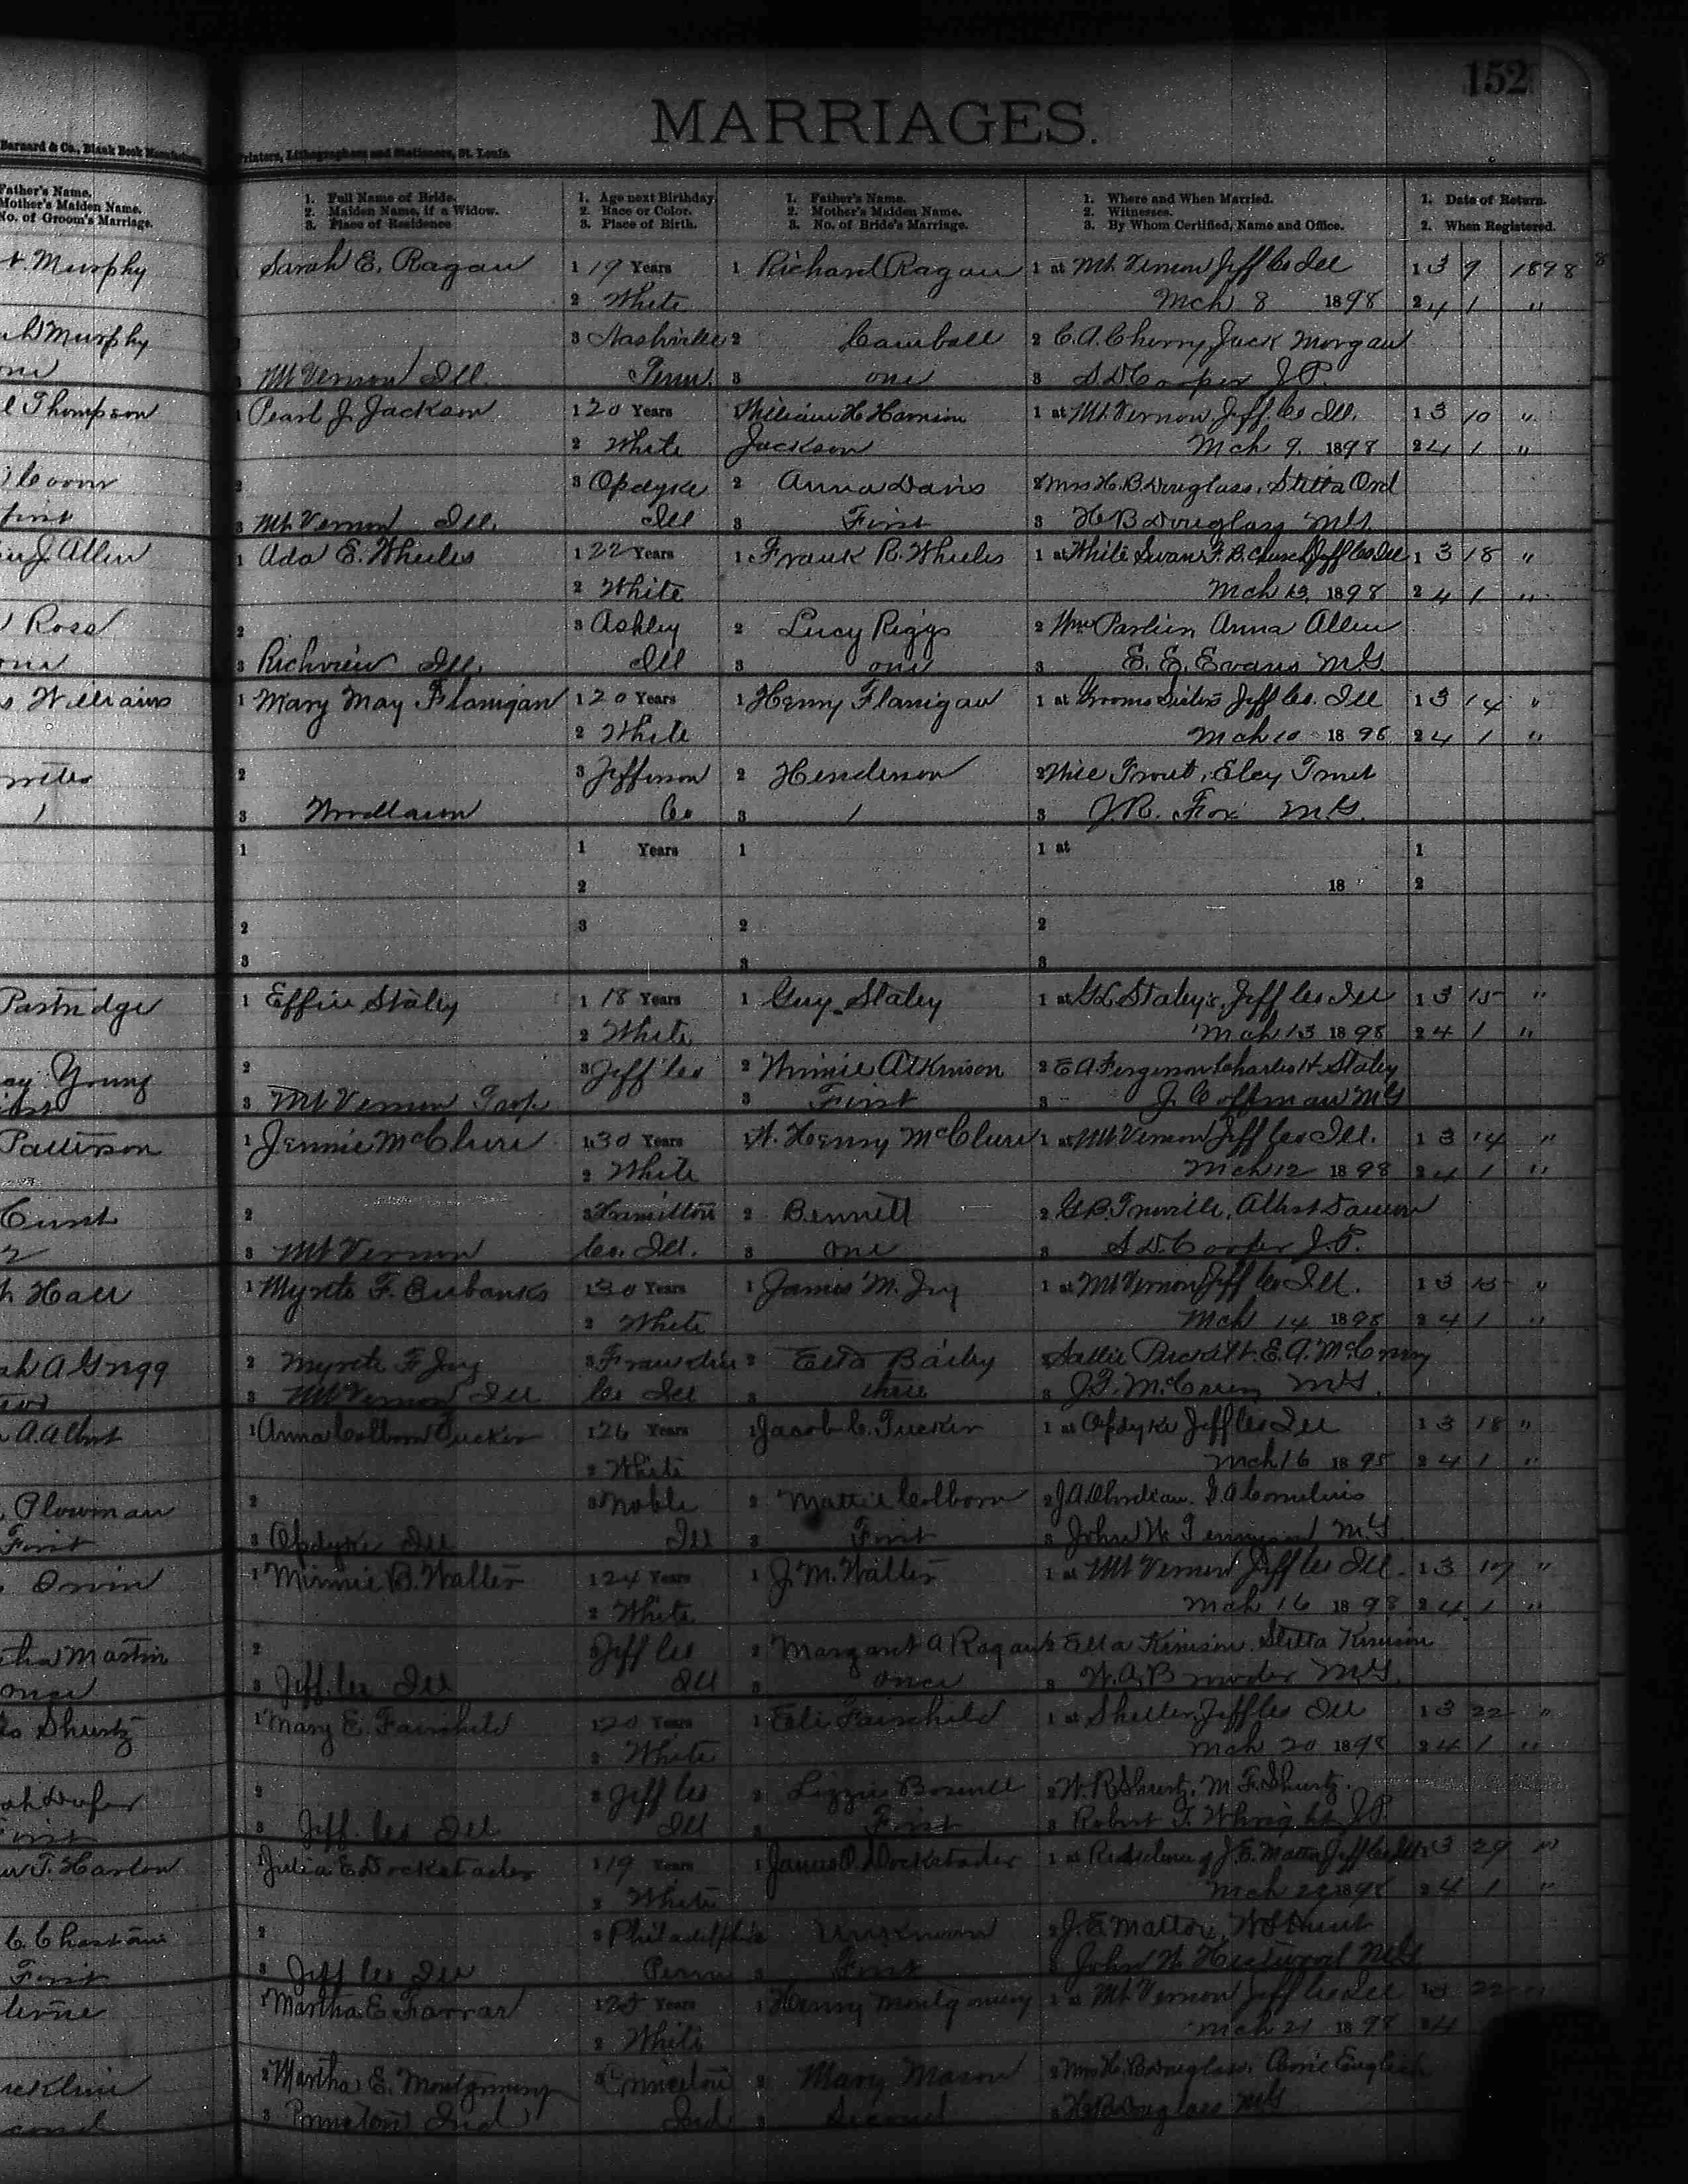 152
MARRIAGES.
Barnard & Co., Blank Book Manufacturers,
Printers, Lithographers and Stationers, St. Louis.
Father's Name.
Mother's Maiden Name.
No. of Groom's Marriage.
1. Full Name of Bride.
2. Maiden Name, if a Widow.
3. Place of Residence
1. Age next Birthday.
2. Race or Color.
3. Place of Birth.
1. Father's Name.
2. Mother's Maiden Name.
3. No. of Bride's Marriage.
1. Where and When Married.
2. Witnesses.
3. By Whom Certified, Name and Office.
1. Date of Return.
2. When Registered.
Murphy 1 Sarah E. Ragan 1 19 Years 1 Richard Ragan 1 at Mt. Vernon Jeff Co Ill 1 3 9 1898
2 White Mch 8 1898 2 4 1 "
Murphy 3 Nashville 2 Camball 2 C. A. Cherry, Jack Morgan
3 Mt Vernon Ill. Tenn. 3 one 3 S D Cooper J.P.
Thompson 1 Pearl J. Jackson 1 20 Years William H Harrison 1 at Mt. Vernon Jeff. Co Ill. 1 3 10 "
2 White Jackson Mch 9, 1898 2 4 1 "
2 3 Opdyke 2 Anna Davis 2 Mrs H. B Douglass, Stella Ord
first 3 Mt. Vernon Ill. Ill 3 First 3 H B Douglass M.G.
J Allen 1 Ada E. Wheeles 1 22 Years 1 Frank R. Wheeles 1 at White Swan F. B. Church Jeff Co Ill 1 3 18 "
2 White Mch 13, 1898 2 4 1 "
Ross 2 3 Ashley 2 Lucy Riggs 2 Wm Parlien Anna Allen
3 Richview Ill. Ill 3 one 3 E. E. Evans M.G.
Williams 1 Mary May Flanigan 1 20 Years 1 Henry Flanigan 1 at Grooms Sisters Jeff Co. Ill 1 3 14 "
2 White Mch 10 1898 2 4 1 "
2 3 Jefferson 2 Henderson 2
1 3 Woodlawn Co 3 1 3 J. R. Fox M.G.
1 1 Years 1 1 at 1
2 18 2
2 3 2 2
3 3 3
Partridge 1 Effie Staley 1 18 Years 1 Guy Staley 1 at G L Staley's, Jeff Co Ill 1 3 15 "
2 White Mch 13 1898 2 4 1 "
Young 2 3 Jeff Co 2 Winnie Atkinson 2 E A Ferguson Charles H. Staley
3 Mt Vernon Twp 3 First 3 J. Coffman M G
Patterson 1 Jennie McClure 1 30 Years 1 W. Henry McClure 1 at Mt Vernon Jeff Co Ill. 1 3 14 "
2 White Mch 12 1898 2 4 1 "
2 3 Hamilton 2 Bennett 2 G B.
2 3 Mt Vernon Co. Ill. 3 one 3 S D. Cooper J.P.
Hall 1 Myrtle F. Eubanks 1 30 Years 1 James M. Joy 1 at Mt Vernon Jeff Co Ill. 1 3 15 "
2 White Mch 14 1898 2 4 1 "
A Grigg 2 Myrtle F Joy 3 Franklin 2 Etta Bailey 2 Sallie Puckett. E. A. McCreery
3 Mt Vernon Ill Co Ill 3 three 3 J. F. McCreery M G.
A. Albert 1 Anna Colborn Tucker 1 26 Years 1 Jacob C. Tucker 1 at Opdyke Jeff Co Ill 1 3 18 "
2 White Mch 16 1898 2 4 1 "
Plowman 2 3 Noble 2 Mattie Colborn 2
First 3 Opdyke Ill Ill 3 First 3 John W. Tennyson M G.
1 Minnie B. Walter 1 24 Years 1 J. M. Walter 1 at Mt Vernon Jeff Co Ill. 1 3 17 "
2 White Mch 16 1898 2 4 1 "
Martin 2 3 Jeff Co 2 Margaret A Ragan 2 Etta Kinison. Stella Kinison
once 3 Jeff. Co Ill Ill 3 once 3 W. A. Browder M G.
Shurtz 1 Mary E. Fairchild 1 20 Years 1 Eli Fairchild 1 at Sheller, Jeff Co Ill 1 3 22 "
2 White Mch 20 1898 2 4 1 "
2 3 Jeff Co 2 Lizzie Boswell 2 W. R Shurtz, M. F. Shurtz.
First 3 Jeff. Co Ill Ill 3 First 3 Robert T. Whright J.P.
T. Harlow 1 Julia E Dockstader 1 19 Years 1 James O. Dockstader 1 at Residence of J. E. Mattox Jeff Co Ill 1 3 29 "
2 White Mch 1898 2 4 1 "
C. Chastain 2 3 Philadelphia Unknown 2 J. E Mattox, W S Hunt
First 3 Jeff Co Ill Penn 3 First 3 John W. M G
1 Martha E. Farrar 1 Years 1 Henry Montgomery 1 at Mt. Vernon Jeff Co Ill 1 3 22 "
2 White Mch 21 1898 2 4
2 Martha E. Montgomery 3 Princeton 2 Mary Mason 2 Mrs H. B Douglass, English
3 Princeton Ind Ind 3 Second 3 H B Douglass M G